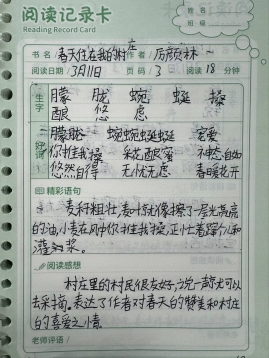 阅读记录卡
Reading Record Card
姓名
班级
书名 春天住在我的村庄 作者 厉彦林
阅读日期 3月11日 页码 3 阅读 18 分钟
生字
朦 胧 蜿 蜒 操
酿 悠 虑
好词
朦朦胧胧 蜿蜿蜒蜒 宠爱
你拄我操 采花酿蜜 神态自如
悠然自得 无忧无虑 春暖花开
精彩语句
麦秆粗壮,麦叶就像擦了一层光亮亮
的油,小麦在风中你拄我操,正忙着蹿个和
灌浆。
阅读感想
村庄里的村民很友好,说一声就可以
去采摘,表达了作者对春天的赞美和村庄
的喜爱之情
老师评语